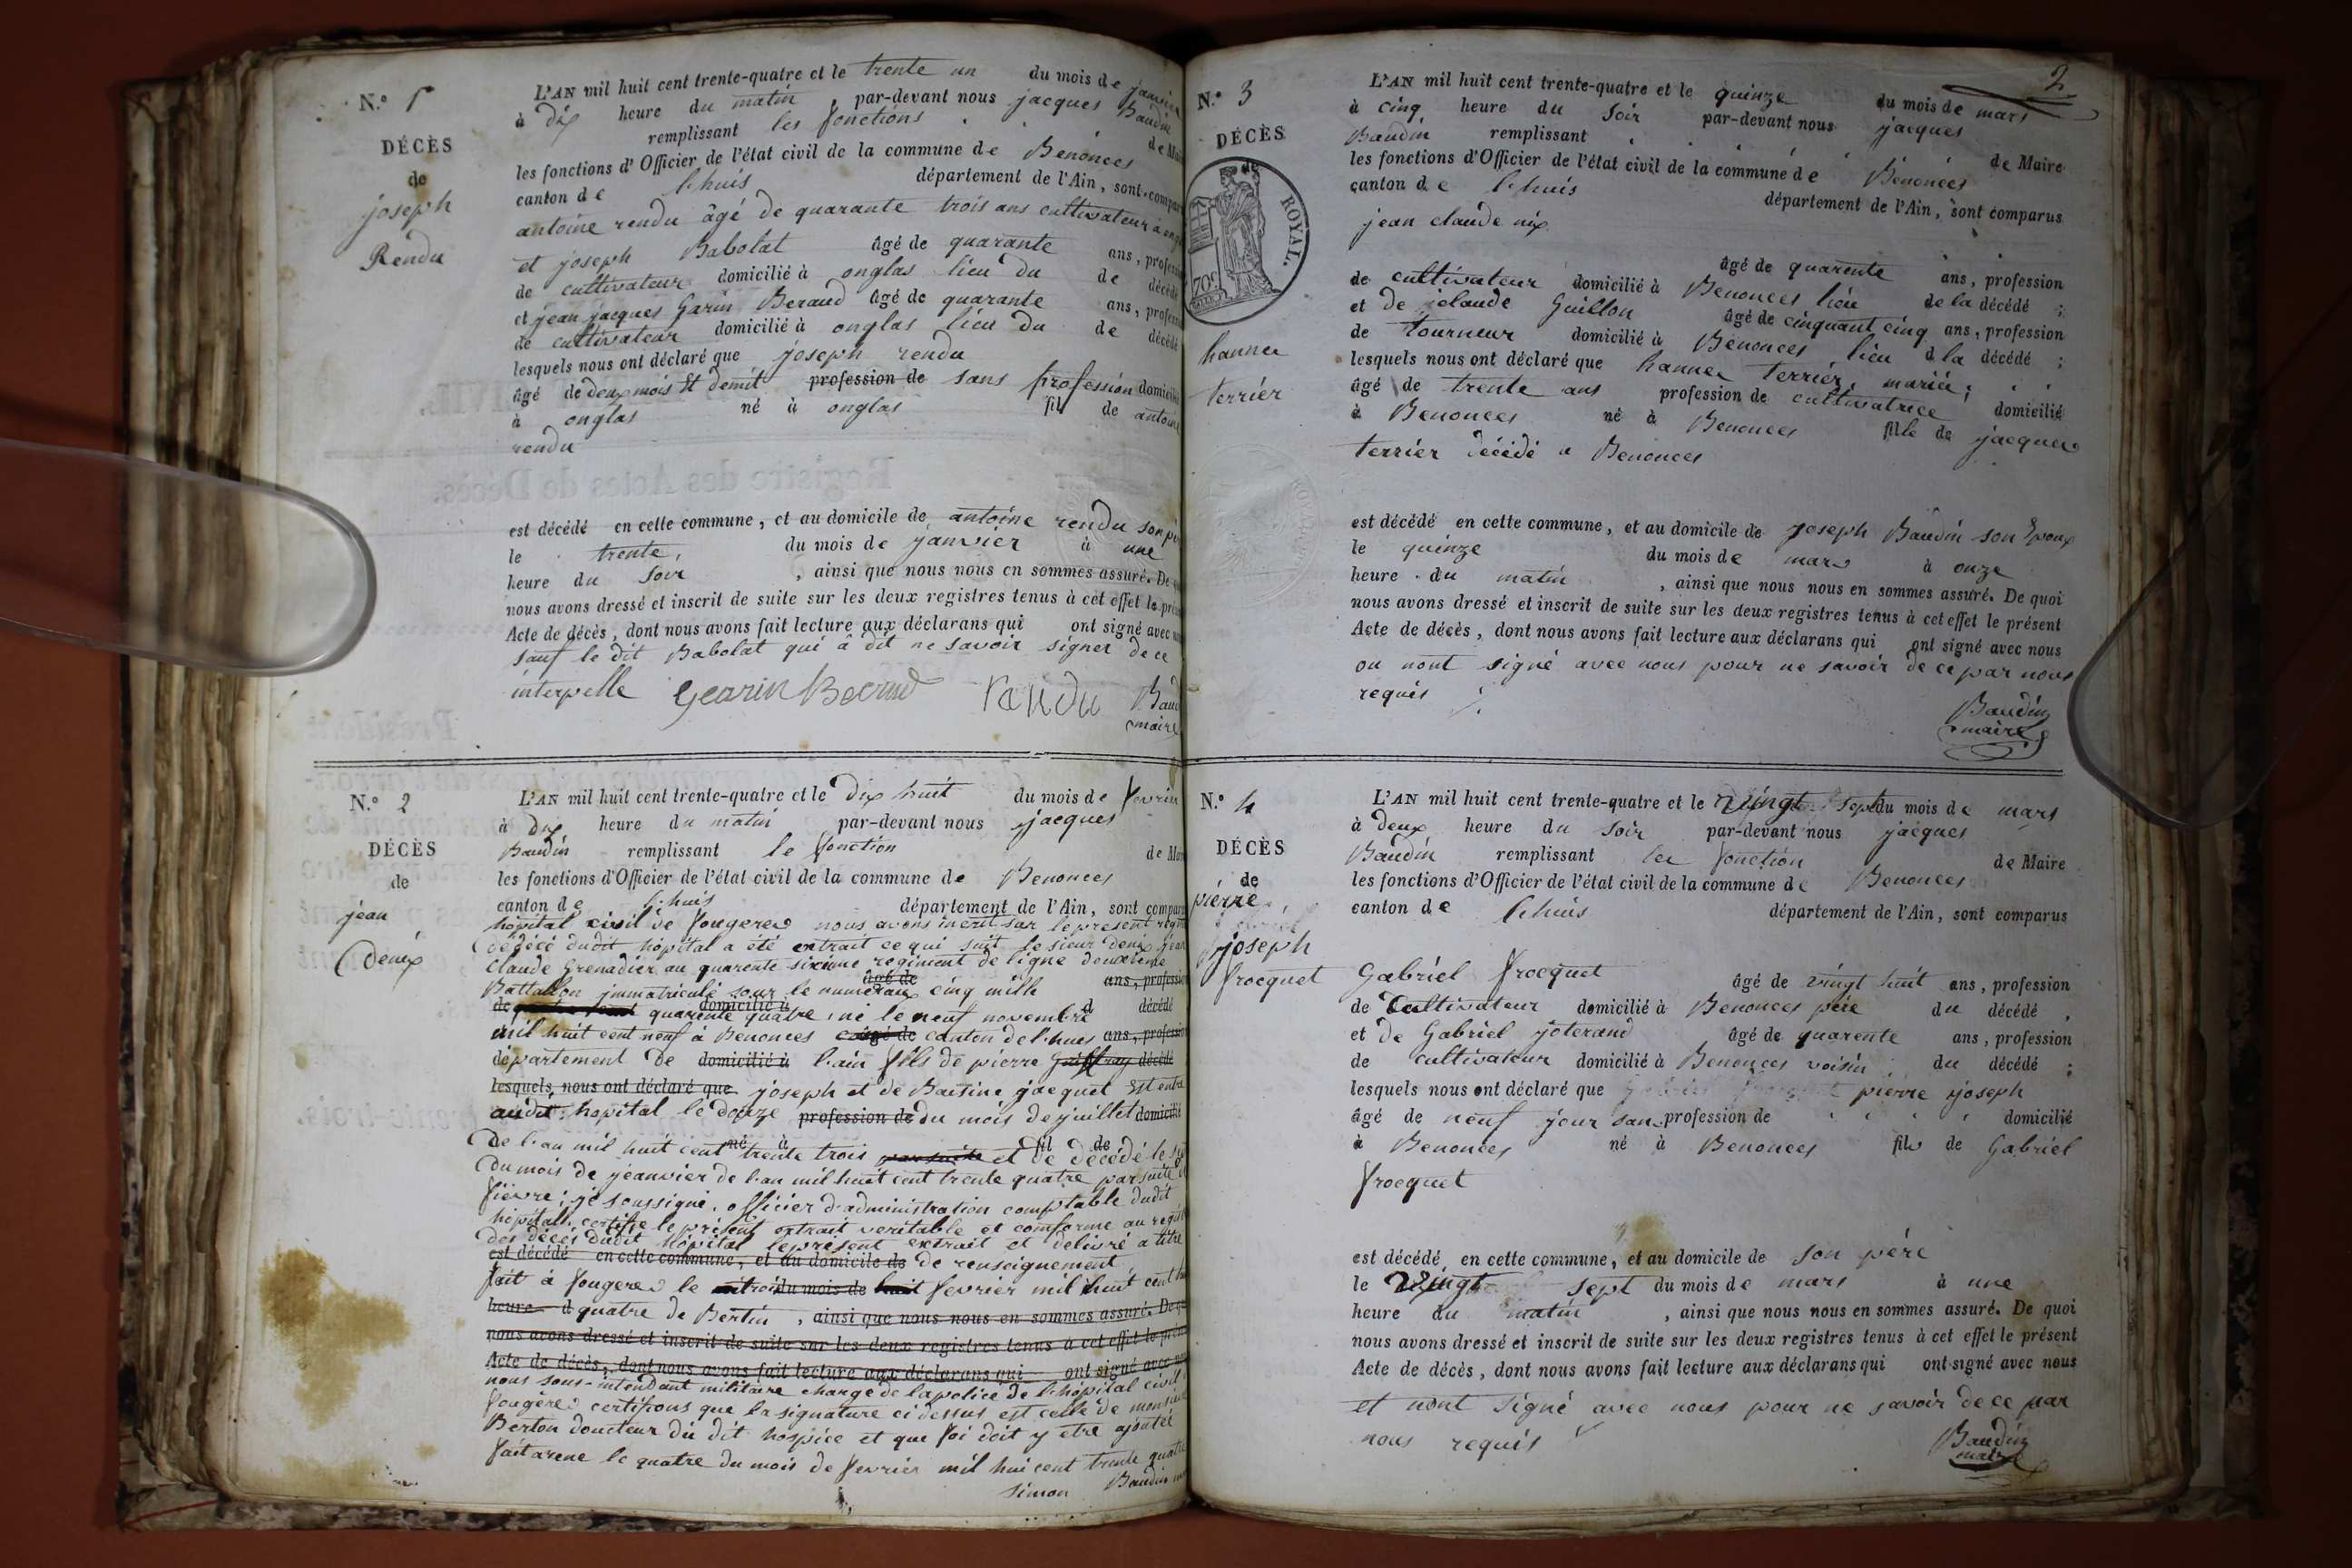 N.° 1
DÉCÈS
de
joseph
Rendu
L'AN mil huit cent trente-quatre et le trente un du mois de janvier
à dix heure du matin, par-devant nous jacques Baudin
remplissant les fonctions de Mai
les fonctions d'Officier de l'état civil de la commune de Benonces
canton de lhuis département de l'Ain, sont compar
antoine rendu âgé de quarante trois ans cultivateur à
et joseph Babolat âgé de quarante ans, profess
de cultivateur domicilié à onglas lieu du de décédé
et jean jacques Garin Beraud âgé de quarante ans, profess
de cultivateur domicilié à onglas lieu du de décédé
lesquels nous ont déclaré que joseph rendu
âgé de deux mois Et demit profession de sans profession domicilié
à onglas né à onglas fil de antoine
rendu
est décédé en cette commune, et au domicile de antoine rendu son pè
le trente, du mois de janvier à une
heure du soir, ainsi que nous nous en sommes assuré. De
nous avons dressé et inscrit de suite sur les deux registres tenus à cet effet le prés
Acte de décès, dont nous avons fait lecture aux déclarans qui ont signé avec
sauf le dit Babolat qui â dit ne savoir signer de ce
interpelle Gearin Beraud randu Baud
maire
N.° 2
DÉCÈS
de
jean
Denix
L'AN mil huit cent trente-quatre et le dix huit du mois de fevrier
à dix heure du matin par-devant nous jacques
Baudin remplissant le fonction de Mai
les fonctions d'Officier de l'état civil de la commune de Benonces
canton de lhuis département de l'Ain, sont compar
hôpital civil de fougeres nous avons incrit sur le present
de décé dudit hôpital a été extrait ce qui suit le sieur Denix jean
Claude Grenadier au quarente sixieme regiment de ligne deuxieme
âgé de ans, profession
Battallon jmmatriculé sour le numéraux cinq mille
de domicilié à d décédé
quarente quatre, né le neuf novembre
mil huit cent neuf à Benonces âgé de canton de lhues ans, profession
département de domicilié à l'ain fils de pierre décédé
lesquels, nous ont déclaré que joseph et de jacquet Est entré
audit hopital le douze profession de du mois de juillet domicilié
né à fil de
De l'an mil huit cent trente trois et de décédé le
du mois de jeanvier de l'an mil huit cent trente quatre par suite
fièvre; je soussigné, officier d'administration comptable dudit
hôpitall, certifie le présent extrait veritable et comforme au
des décés dudit hôpital le present extrait et delivré a titre
est décédé en cette commune, et au domicile de de renseignement
fait à fougeres le du mois de fevrier mil huit cent
heure d quatre de Bertin, ainsi que nous nous en sommes assuré. De
nous avons dressé et inscrit de suite sur les deux registres tenus à cet effet le prés
Acte de décès, dont nous avons fait lecture aux déclarans qui ont signé avec
nous sous-intendant militaire chargé de la police de l'hôpital civil
fougères certifions que la signature ci dessus est celle de monsi
Berton doucteur du dit hospice et que foi doit y etre ajoutée
fait arene le quatre du mois de fevrier mil hui cent trente quatre
simon Baudin
2
N.° 3
DÉCÈS
de
ROYAL.
70c.
hannee
terrier
L'AN mil huit cent trente-quatre et le quinze du mois de mars
à cinq heure du soir par-devant nous jacques
Baudin remplissant de Maire
les fonctions d'Officier de l'état civil de la commune de Benonces
canton de lhuis département de l'Ain, sont comparus
jean claude nix
âgé de quarente ans, profession
de cultivateur domicilié à Benonces lieu de la décédé;
et de claude Guillon âgé de cinquant cinq ans, profession
de tourneur domicilié à Benonces lieu d la décédé;
lesquels nous ont déclaré que hannee terrier, mariée;
âgé de trente ans profession de cultivatrice domicilié
à Benonces né à Benonces fille de jacques
terrier décédé a Benonces
est décédé en cette commune, et au domicile de joseph Baudin son Epoux
le quinze du mois de mars à onze
heure du matin, ainsi que nous nous en sommes assuré. De quoi
nous avons dressé et inscrit de suite sur les deux registres tenus à cet effet le présent
Acte de décès, dont nous avons fait lecture aux déclarans qui ont signé avec nous
ou nont signé avec nous pour ne savoir de ce par nous
requis
Baudin
maire
N.° 4
DÉCÈS
de
pierre
joseph
frocquet
L'AN mil huit cent trente-quatre et le vingt sept du mois de mars
à deux heure du soir par-devant nous jacques
Baudin remplissant les fonction de Maire
les fonctions d'Officier de l'état civil de la commune de Benonces
canton de lhuis département de l'Ain, sont comparus
Gabriel frocquet âgé de vingt huit ans, profession
de Cultivateur domicilié à Benonces pére du décédé,
et de Gabriel joterand âgé de quarente ans, profession
de cultivateur domicilié à Benonces voisin du décédé;
lesquels nous ont déclaré que pierre joseph
âgé de neuf jour san profession de domicilié
à Benonces né à Benonces fils de Gabriel
frocquet
est décédé, en cette commune, et au domicile de son pére
le vingt sept du mois de mars à une
heure du matin, ainsi que nous nous en sommes assuré. De quoi
nous avons dressé et inscrit de suite sur les deux registres tenus à cet effet le présent
Acte de décès, dont nous avons fait lecture aux déclarans qui ont signé avec nous
et nont signé avec nous pour ne savoir de ce par
nous requis
Baudin
maire